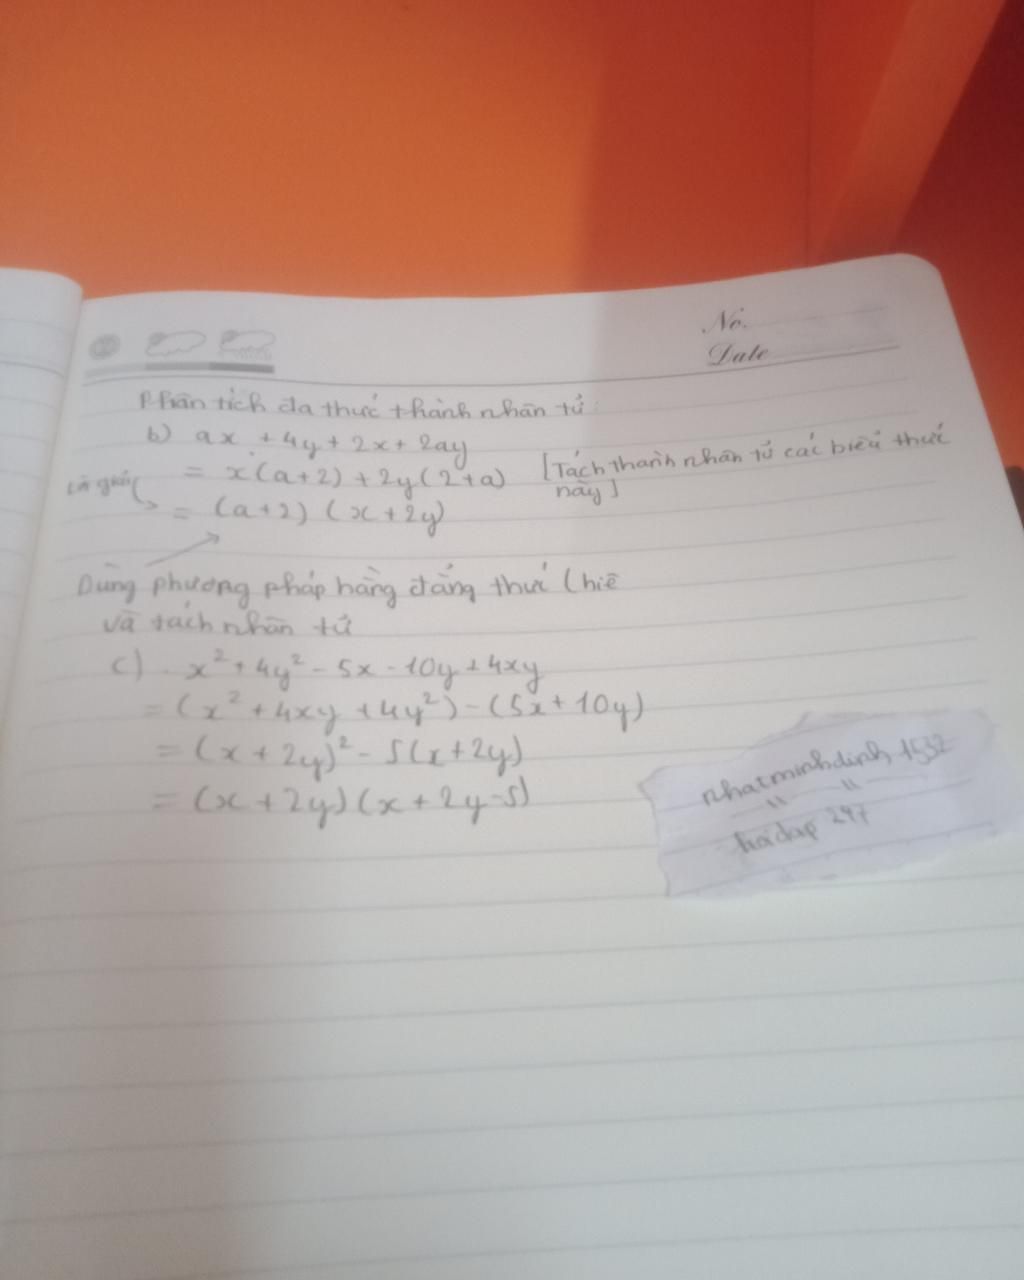 No.
Date
Phân tích đa thức thành nhân tử:
b) ax + 4y + 2x + 2ay
= x(a+2) + 2y(2+a) [Tách thành nhân tử các biểu thức này]
= (a+2) (x+2y)
Dùng phương pháp hằng đẳng thức (hiê
và tách nhân tử
c) x² + 4y² - 5x - 10y + 4xy
= (x² + 4xy + 4y²) - (5x + 10y)
= (x + 2y)² - 5(x + 2y)
= (x + 2y)(x + 2y - 5)
nhatminhdinh 1532
hoidap 247